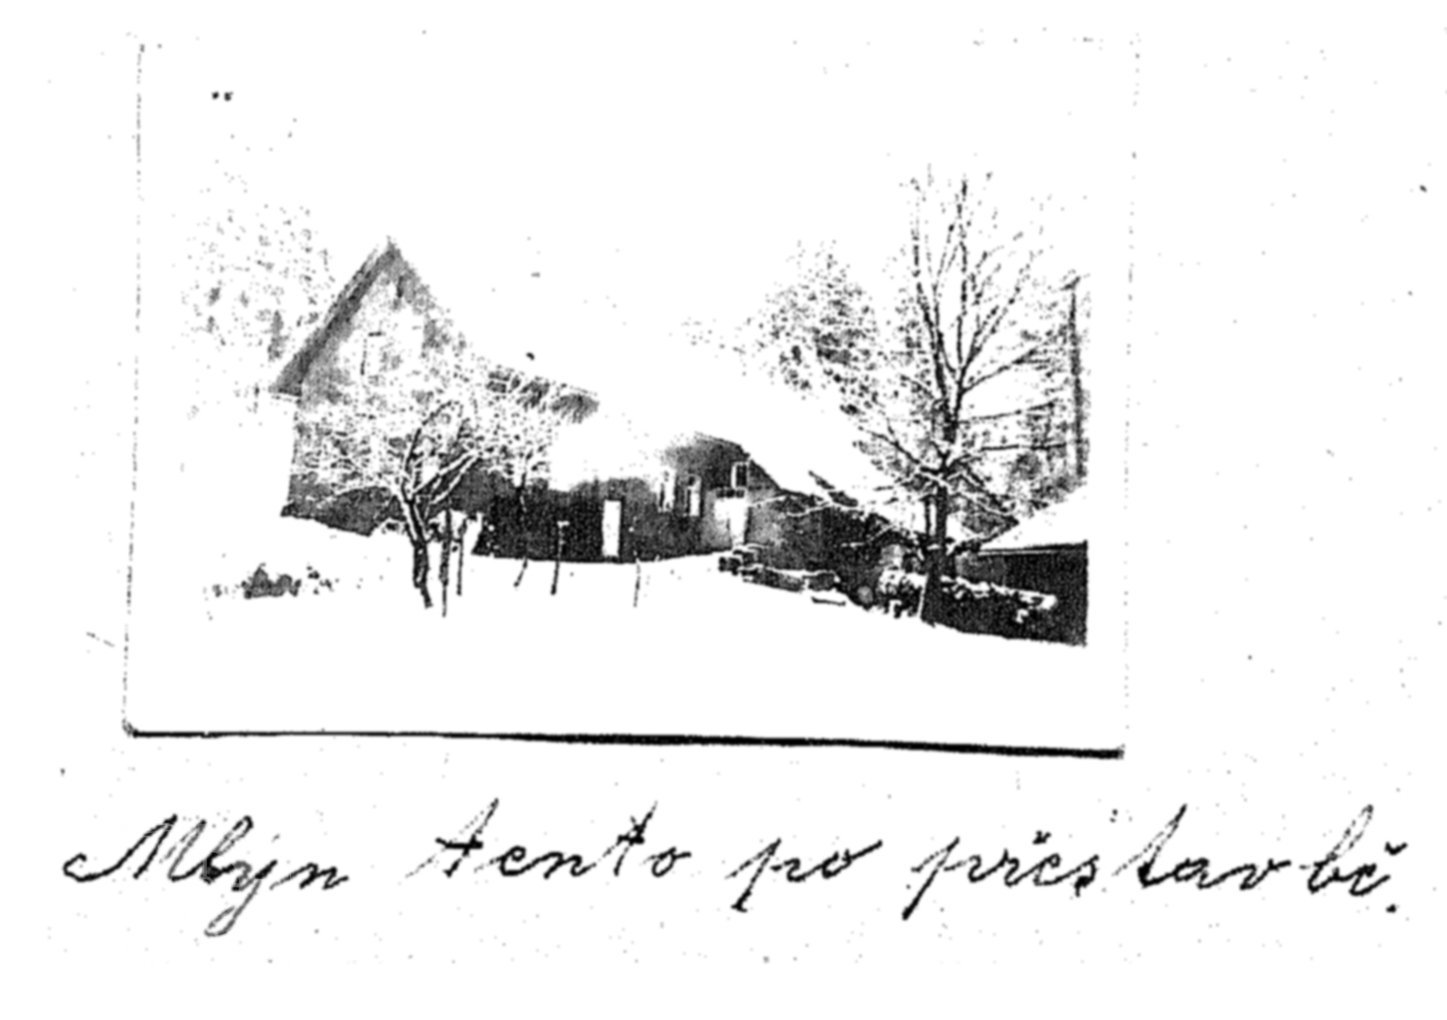 Mlýn tento po přestavbě.